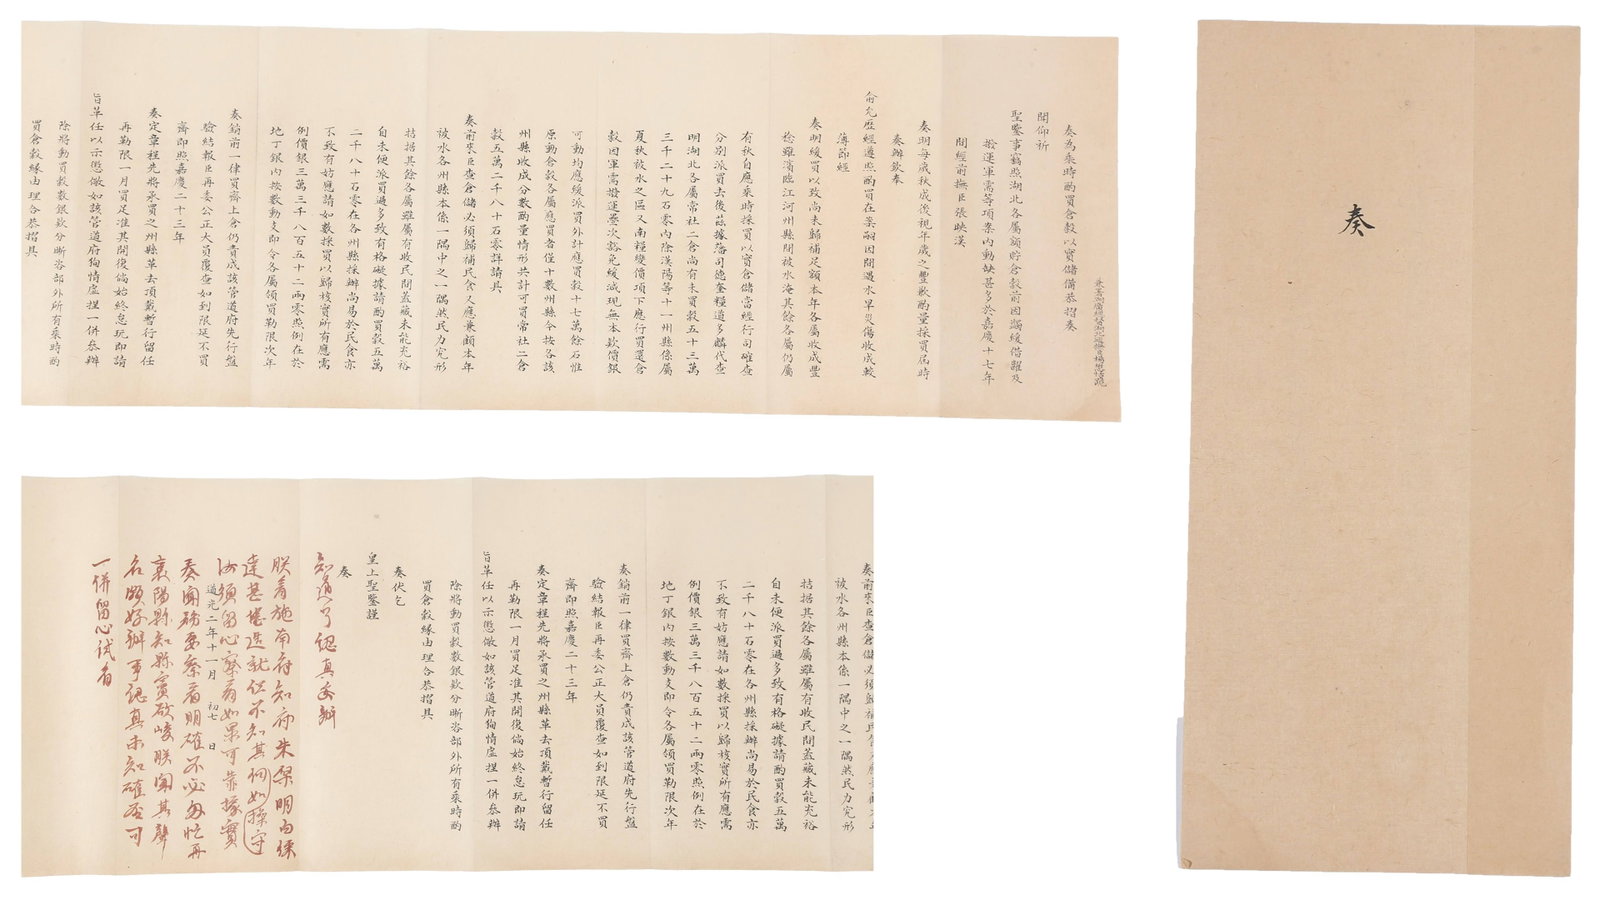 奏
兼署湖廣總督湖北巡撫臣楊懋恬跪
奏為乘時酌買倉穀以實儲備恭摺奏
聞仰祈
聖鑒事竊照湖北各屬額貯倉穀前因蠲緩借糶及
撥運軍需等項案內動缺甚多於嘉慶十七年
間經前撫臣張映漢
奏明每歲秋成後視年歲之豐歉酌量採買屆時
奏辦欽奉
俞允歷經遵照酌買在案嗣因間遇水旱災傷收成較
薄節經
奏明緩買以致尚未歸補足額本年各屬收成豐
稔雖濱臨江河州縣間被水淹其餘各屬仍屬
有秋自應乘時採買以實倉儲當經行司確查
分別派買去後茲據藩司德奎糧道多麟代查
明湖北各屬常社二倉尚有未買穀五十三萬
三千二十九石零內除漢陽等十一州縣係屬
夏秋被水之區又南糧變價項下應行買還倉
穀因軍需撥運疊次豁免緩減現無本款價銀
可動均應緩派買外計應買穀十七萬餘石惟
原動倉穀各屬應買者僅十數州縣令按各該
州縣收成分數酌量情形共計可買常社二倉
穀五萬二千八十石零詳請具
奏前來臣查倉儲必須歸補民食又應兼顧本年
被水各州縣本係一隅中之一隅然民力究形
拮据其餘各屬雖屬有收民間蓋藏未能充裕
自未便派買過多致有格礙據請酌買穀五萬
二千八十石零在各州縣採辦尚易於民食亦
不致有妨應請如數採買以歸核實所有應需
例價銀三萬三千八百五十二兩零照例在於
地丁銀內按數動支即令各屬領買勒限次年
奏銷前一律買齊上倉仍責成該管道府先行盤
驗結報臣再委公正大員覆查如到限延不買
齊即照嘉慶二十三年
奏定章程先將承買之州縣革去頂戴暫行留任
再勒限一月買足准其開復倘始終怠玩即請
旨革任以示懲儆如該管道府徇情虛捏一併參辦
除將動買穀數銀款分晰咨部外所有乘時酌
買倉穀緣由理合恭摺具
奏前來臣查倉儲必須歸補民食又應兼顧本年
被水各州縣本係一隅中之一隅然民力究形
拮据其餘各屬雖屬有收民間蓋藏未能充裕
自未便派買過多致有格礙據請酌買穀五萬
二千八十石零在各州縣採辦尚易於民食亦
不致有妨應請如數採買以歸核實所有應需
例價銀三萬三千八百五十二兩零照例在於
地丁銀內按數動支即令各屬領買勒限次年
奏銷前一律買齊上倉仍責成該管道府先行盤
驗結報臣再委公正大員覆查如到限延不買
齊即照嘉慶二十三年
奏定章程先將承買之州縣革去頂戴暫行留任
再勒限一月買足准其開復倘始終怠玩即請
旨革任以示懲儆如該管道府徇情虛捏一併參辦
除將動買穀數銀款分晰咨部外所有乘時酌
買倉穀緣由理合恭摺具
奏伏乞
皇上聖鑒謹
奏
知道了認真妥辦
朕看施南府知府朱明白條
達甚堪造就但不知其何如操守
汝須留心察看如果可靠據實
道光二年十一月初七日
奏聞務要察看明確不必匆忙再
襄陽縣知縣竇欣峻朕聞其聲
名頗好辦事認真未知確否可
一併留心試看